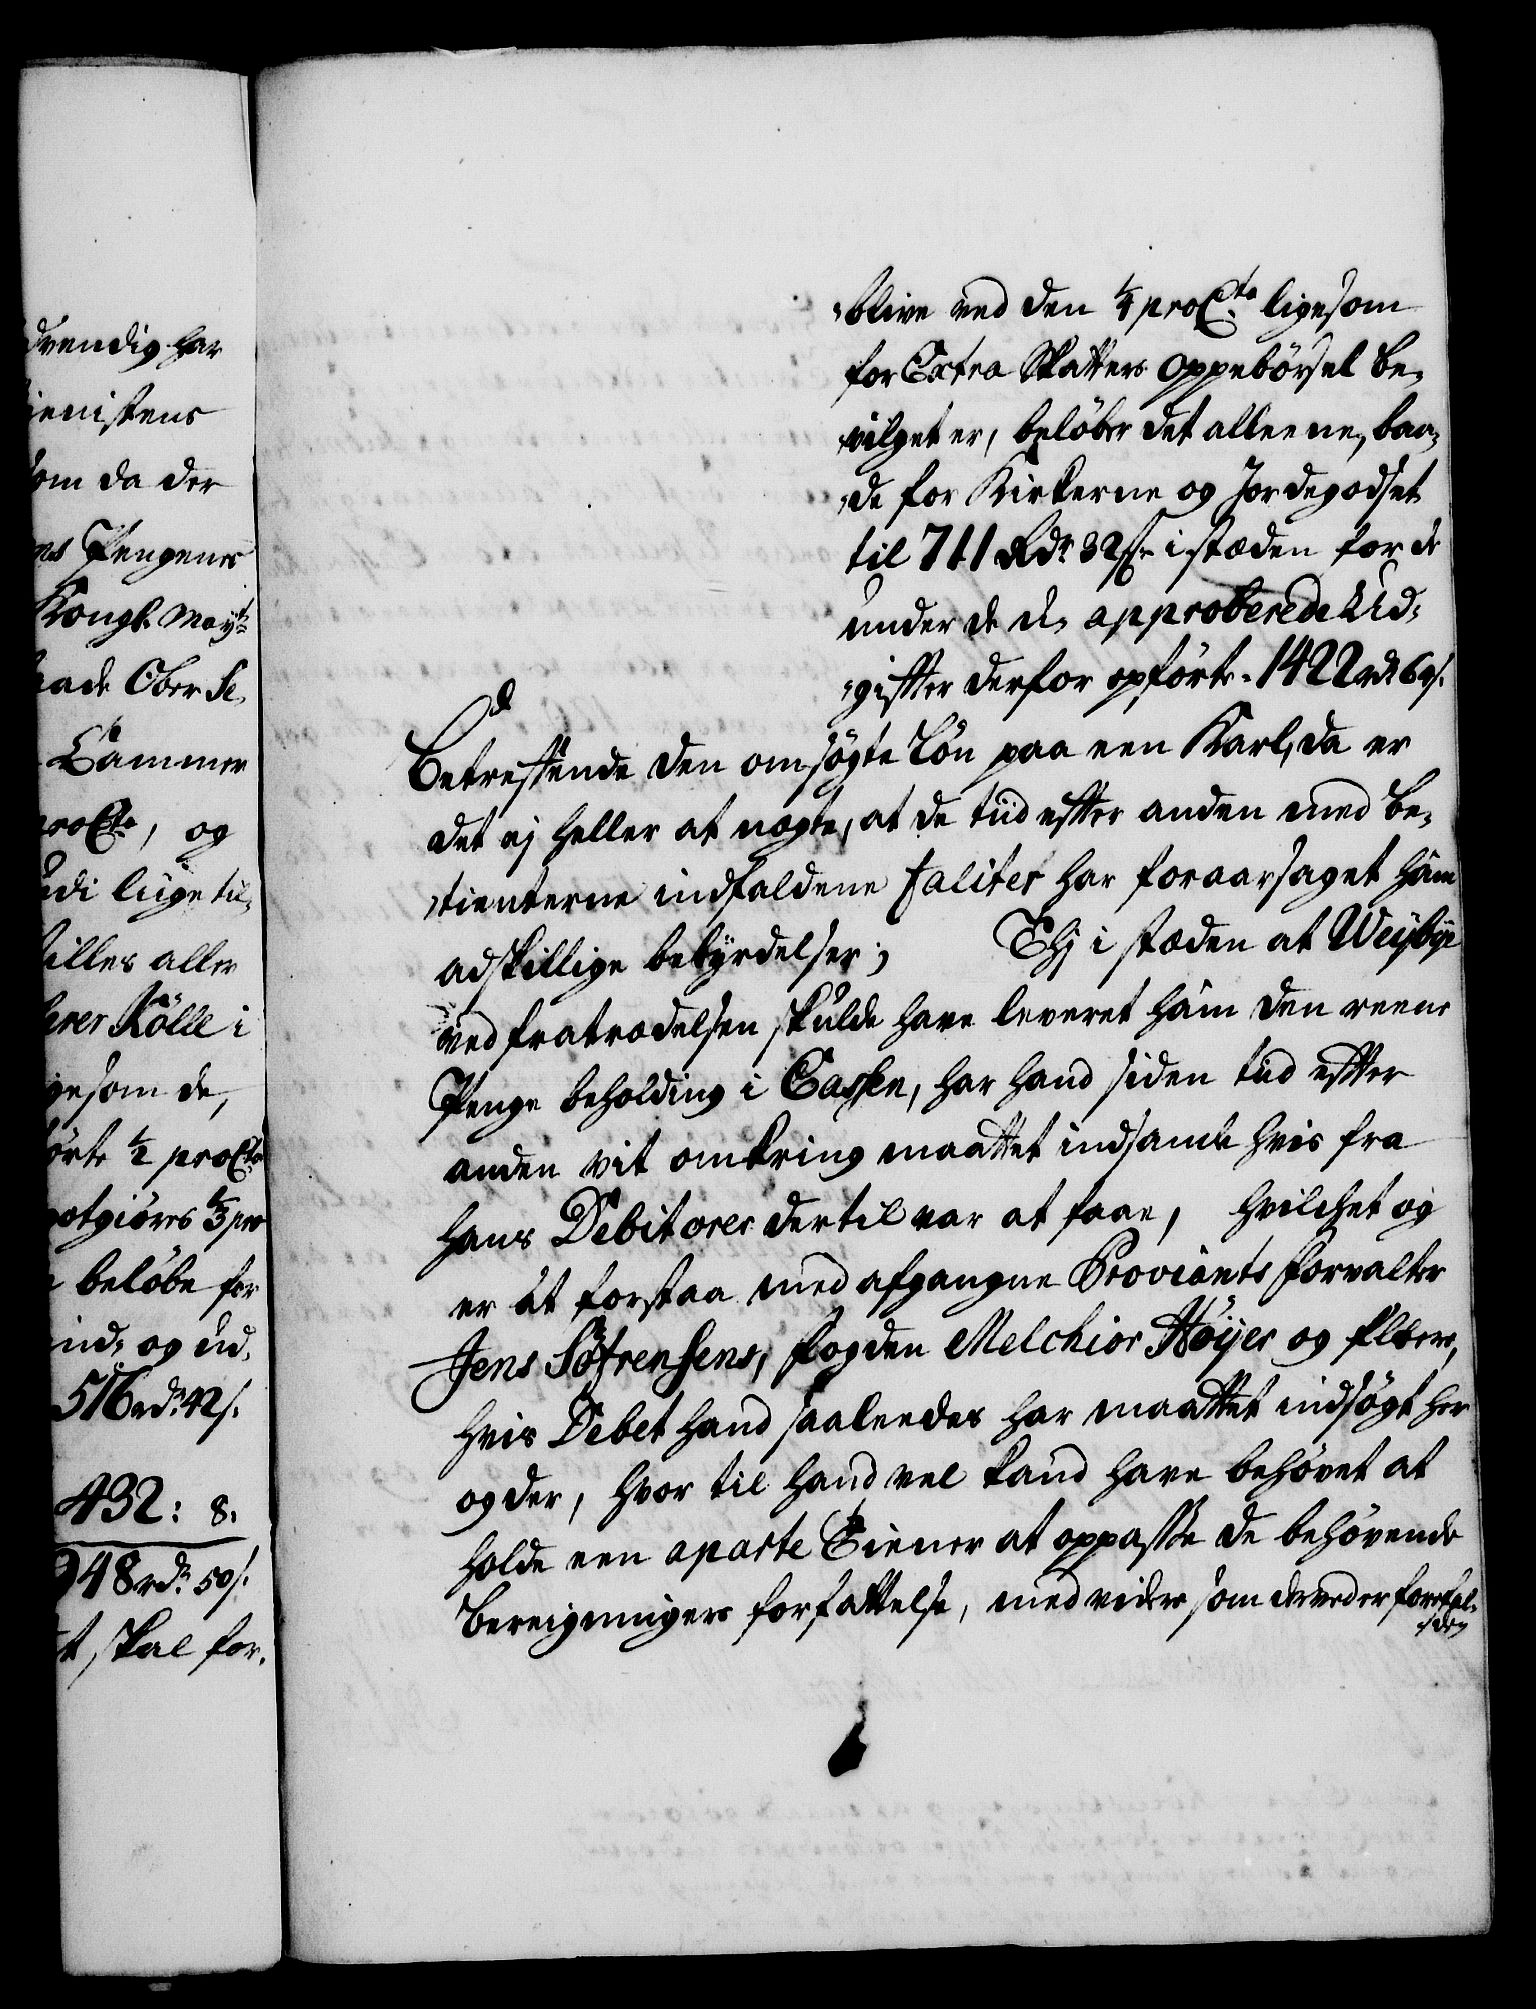 dvendig har
ienistens
som da der
ns Pengenes
Kongl. May.ts
Ober Se-
Cammer
proCto, og
lige til-
stilles aller
Kölle i
gesom de,
örte ½ proCto
godtgiöres ⅓ pro
beløbe for
ind- og ud-
516 rd. 42 s.
432: 8.
948 rd. 50 s.
t, skal for-
blive ved den ¼ proCto ligesom
for Extra Skatters Oppebørsel be-
vilget er, beløber det alleene, baa-
de for Kirkerne og Jordegodset
til 711 Rdr. 32 s. i stæden for de
under de approberede Ud-
gifter derfor opførte 1422 rd. 64 s.
d
Betreffende den omsøgte Løn paa een Karl, da er
det ej heller at nægte, at de tiid efter anden med be-
tienterne indfaldene faliter har foraarsaget ham
adskillige bekyrdelser; Thj i stæden at Weybye
ved fratrædelsen skulde have leveret ham den reene
Penge beholding i Cassen, har hand siden tiid efter
anden vit omkring maattet indsamle hvis fra
hans Debitorer dertil var at faae, hvilchet og
er at forstaa med afgangne Proviants forvalter
Jens Søfrensens, fogden Melchior Høyer og flere,
hvis Debet hand saaleedes har maattet indsøgt her
og der, hvor til hand vel kand have behøvet at
holde een aparte Tiener at oppasse de behøvende
Bereigningers forfattelse, med videre som derved er forefal-
den